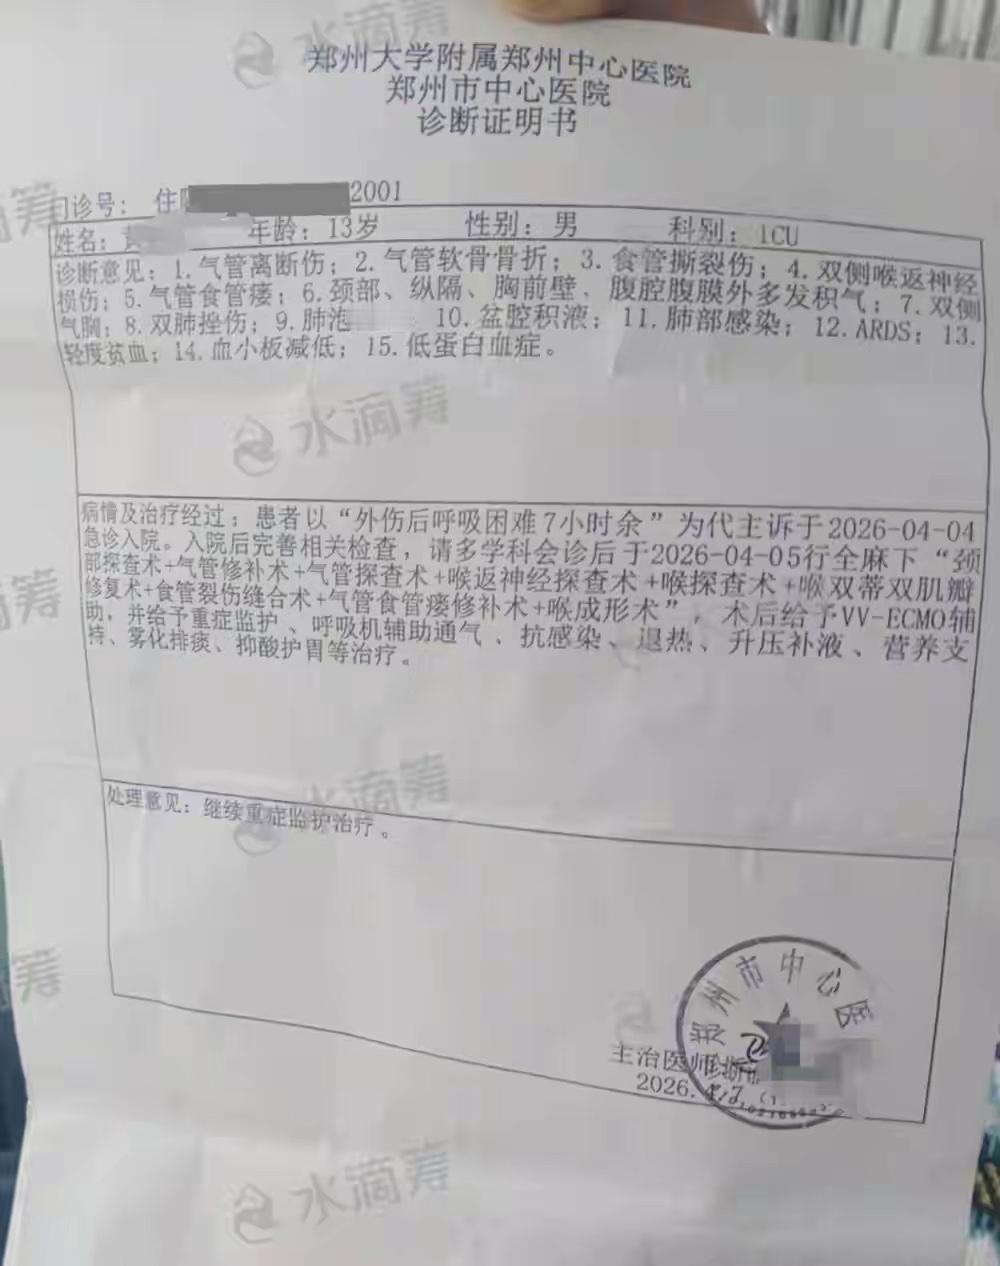 水滴筹
郑州大学附属郑州中心医院
郑州市中心医院
诊断证明书
门诊号： 住 2001
姓名：黄 年龄：13岁 性别：男 科别：ICU
诊断意见：1.气管离断伤；2.气管软骨骨折；3.食管撕裂伤；4.双侧喉返神经
损伤；5.气管食管瘘；6.颈部、纵隔、胸前壁、腹腔腹膜外多发积气；7.双侧
气胸；8.双肺挫伤；9.肺泡 10.盆腔积液；11.肺部感染；12.ARDS；13.
轻度贫血；14.血小板减低；15.低蛋白血症。
水滴筹
病情及治疗经过：患者以“外伤后呼吸困难7小时余”为代主诉于2026-04-04
急诊入院。入院后完善相关检查，请多学科会诊后于2026-04-05行全麻下“颈
部探查术+气管修补术+气管探查术+喉返神经探查术+喉探查术+喉双蒂双肌瓣
修复术+食管裂伤缝合术+气管食管瘘修补术+喉成形术”，术后给予VV-ECMO辅
助，并给予重症监护、呼吸机辅助通气、抗感染、退热、升压补液、营养支
持、雾化排痰、抑酸护胃等治疗。
水滴筹
处理意见：继续重症监护治疗。
郑州市中心医
主治医师
诊断
2026.
水滴筹